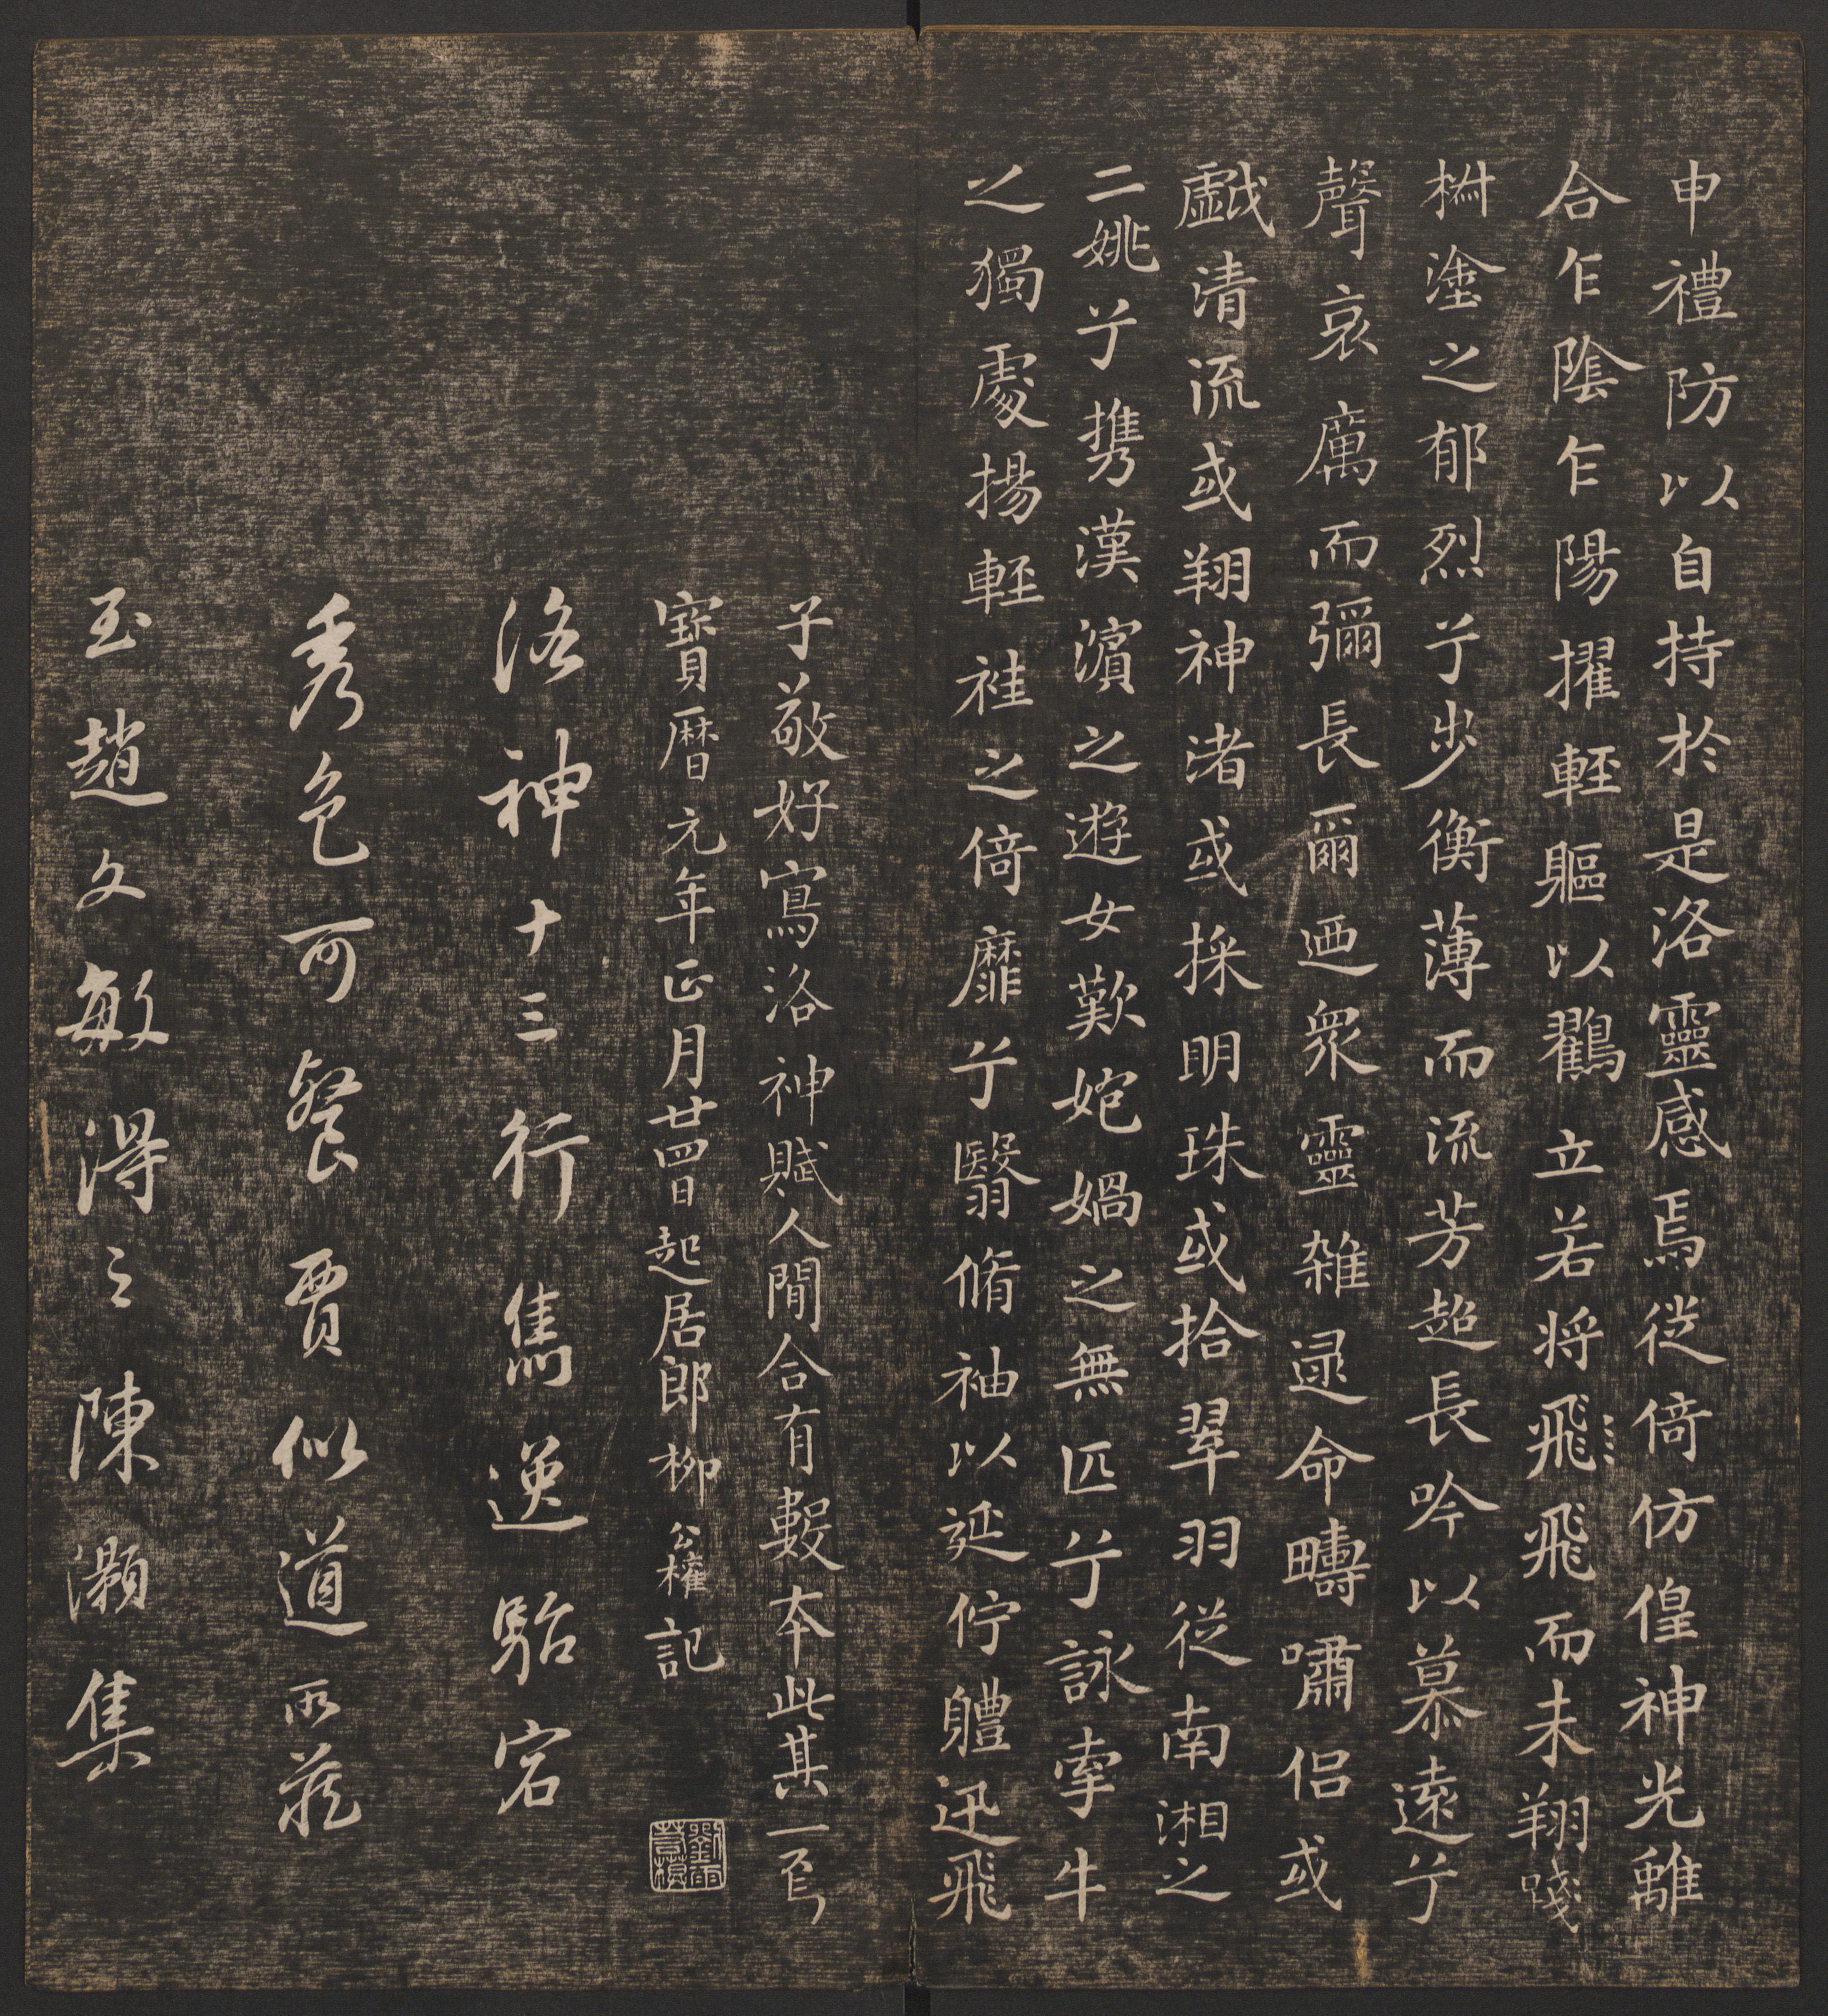 申禮防以自持於是洛靈感焉徙倚仿偟神光離
合乍陰乍陽擢輊軀以鸛立若將飛飛而未翔踐
椒塗之郁烈兮步衡薄而流芳超長吟以慕遠兮
聲哀厲而彌長爾迺衆靈雜遝命疇嘯侶或
戲清流或翔神渚或採明珠或拾翠羽從南湘之
二姚兮携漢濱之遊女歎㚰媧之無匹兮詠牽牛
之獨處揚輊袿之倚靡兮翳脩袖以延佇軆迅飛
子敬好寫洛神賦人間合有數本此其一焉
寶曆元年正月廿四日起居郎柳公權記
洛神十三行雋逸駘宕
秀色可餐賈似道所藏
至趙文敏得之陳灝集